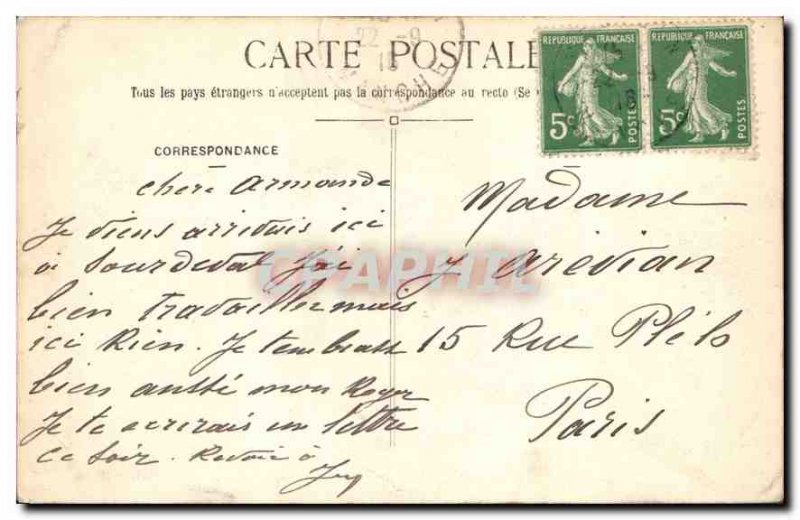 22 -9
CARTE POSTALE
Tous les pays étrangers n'acceptent pas la correspondance au recto (Se
REPUBLIQUE FRANÇAISE
5c
POSTES
REPUBLIQUE FRANÇAISE
5c
POSTES
CORRESPONDANCE
chere Armande
Je viens arrivais ici
a Sourdeval J'ai
bien travailler mais
ici Rien. Je t'embrasse
bien ansté mon Roger
Je te ecrirais un lettre
ce soir. Revoir à
Madame
J Arévian
15 Rue
Paris
CPAPHIL